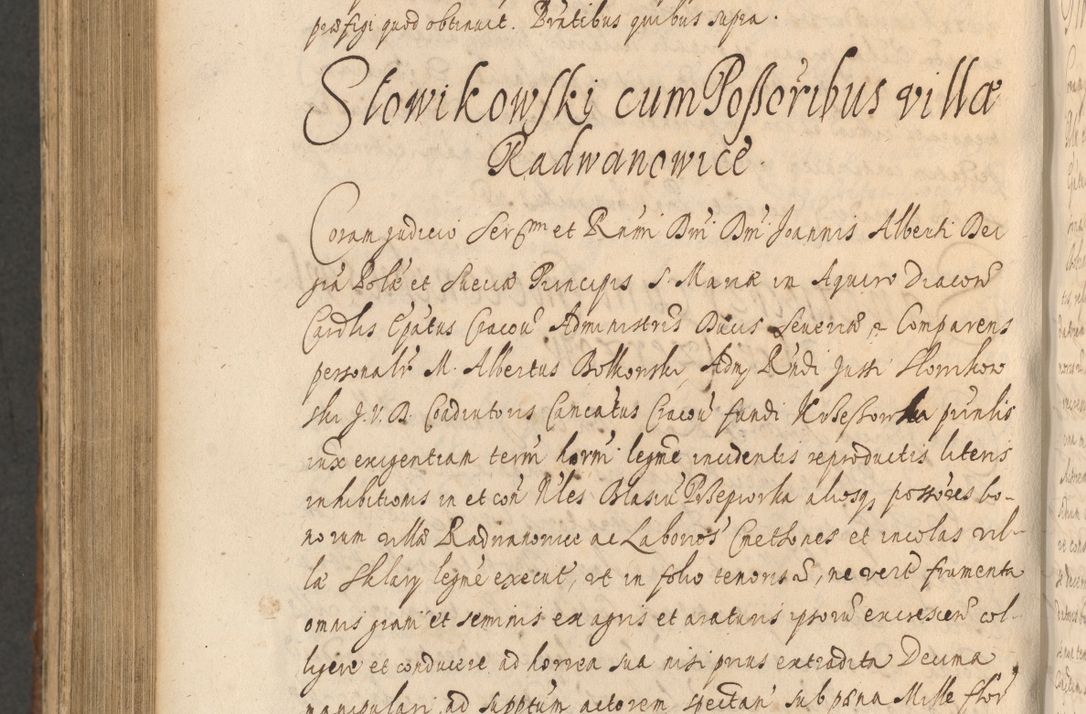 præfigi quod obtinuit. Prñtibus quibus supra.
Słowikowski cum Poßoribus villæ
Radwanowice.
Coram judicio Sersmi et Rndmi Dni Dni Joannis Alberti Dei
gra Polæ et Sueciæ Principis S. Mariæ in Aquiro Diaconi
Cardlis Epatus Cracou Administris Ducis Seueriæ & Comparens
personalr M. Albertus Bolkonski, Rndi Justi Słowikow
ski J.V.D. Coadiutoris Cancatus Cracou fundi prinlis
iux exigentiam term horm legme incidentis reproductis literis
inhibitionis in et con Nles Blasiu aliosq possores bo-
norum villæ Radwanowice ac Labonos Cmethones et incolas vil-
læ Sklary legme execut, vt in folio tenoris, ne vero frumenta
omnis grani et seminis ex agris et araturis ipsoru excrescen col-
ligere et conducere ad horrea sua nisi prius extradita Decima
manipulari ad supptum actorem spectan sub pæna Mille flor